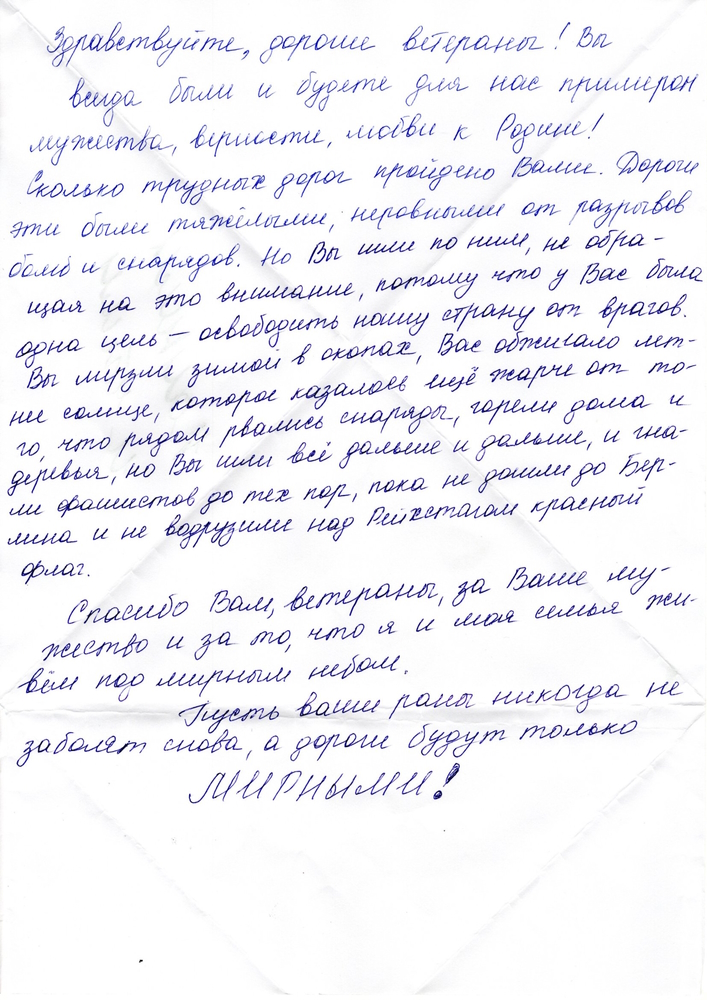 Здравствуйте, дорогие ветераны! Вы
всегда были и будете для нас примером
мужества, верности, любви к Родине!
Сколько трудных дорог пройдено Вами. Дороги
эти были тяжёлыми, неровными от разрывов
бомб и снарядов. Но Вы шли по ним, не обра-
щая на это внимание, потому что у Вас была
одна цель – освободить нашу страну от врагов.
Вы мёрзли зимой в окопах, Вас обжигало лет-
нее солнце, которое казалось ещё жарче от то-
го, что рядом рвались снаряды, горели дома и
деревья, но Вы шли всё дальше и дальше, и гна-
ли фашистов до тех пор, пока не дошли до Бер-
лина и не водрузили над Рейхстагом красный
флаг.
Спасибо Вам, ветераны, за Ваше му-
жество и за то, что я и моя семья жи-
вём под мирным небом.
Пусть ваши раны никогда не
заболят снова, а дороги будут только
МИРНЫМИ!